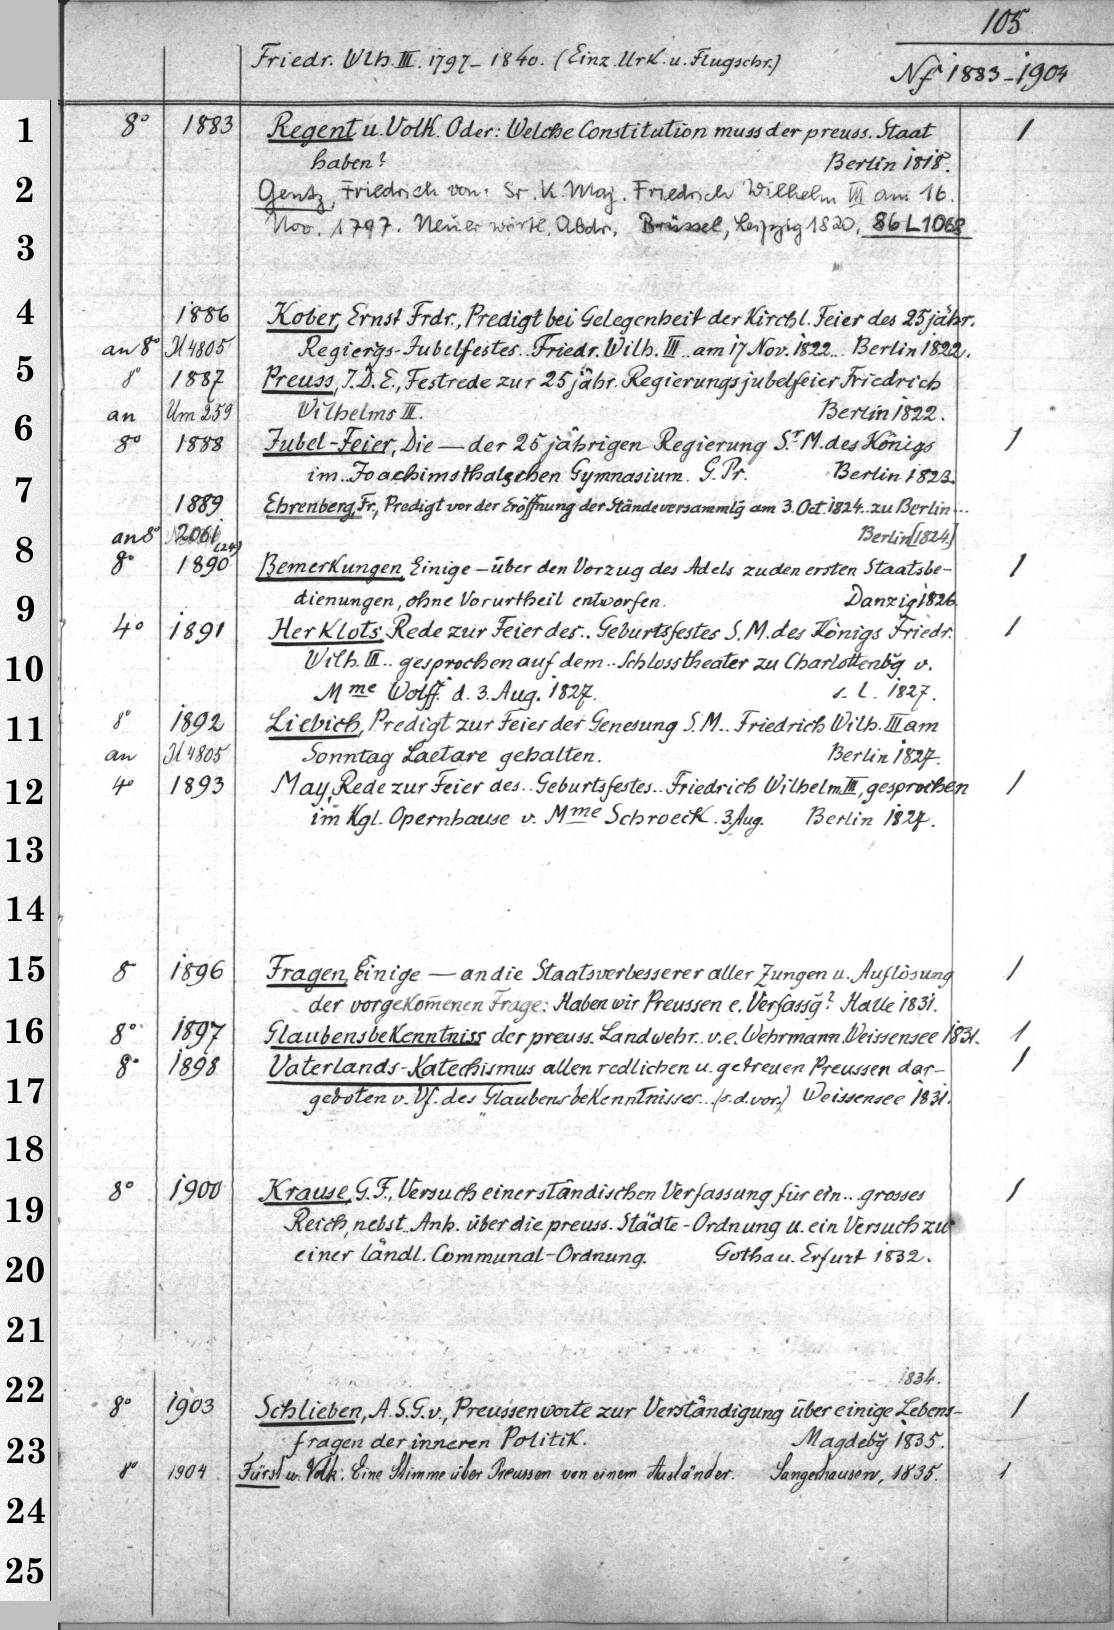 105
Friedr. Wlh. III. 1797-1840. (Einz. Urk. u. Flugschr.)
Nf 1883-1904
1 8° 1883 Regent u. Volk. Oder: Welche Constitution muss der preuss. Staat 1
haben? Berlin 1818.
2 Gentz, Friedrich von: Sr. K. Maj. Friedrich Wilhelm III am 16.
Nov. 1797. Neuer wörtl. Abdr. Brüssel, Leipzig 1820. 86 L 1068
3
4 1886 Kober, Ernst Frdr., Predigt bei Gelegenheit der Kirchl. Feier des 25jähr.
an 8° 4805 Regiergs-Jubelfestes.. Friedr. Wilh. III.. am 17 Nov. 1822... Berlin 1822.
5 8° 1887 Preuss, J.D.E., Festrede zur 25jähr. Regierungsjubelfeier Friedrich
an Um 259 Wilhelms III. Berlin 1822.
6 8° 1888 Jubel-Feier, Die — der 25jährigen Regierung Sr. M. des Königs 1
im.. Joachimsthalschen Gymnasium. G. Pr. Berlin 1823.
7 1889 Ehrenberg, Fr., Predigt vor der Eröffnung der Ständeversammlg am 3. Oct 1824. zu Berlin...
an 8° 2061 (24) Berlin [1824]
8 8° 1890 Bemerkungen, Einige — über den Vorzug des Adels zu den ersten Staatsbe- 1
9 dienungen, ohne Vorurtheil entworfen. Danzig 1826
4° 1891 Herklots, Rede zur Feier des.. Geburtsfestes S. M. des Königs Friedr. 1
10 Wilh. III.. gesprochen auf dem.. Schlosstheater zu Charlottenbg v.
Mme Wolff. d. 3. Aug. 1827. s. l. 1827.
11 8° 1892 Liebich, Predigt zur Feier der Genesung S. M.. Friedrich Wilh. III am
an 4805 Sonntag Laetare gehalten. Berlin 1827.
12 4° 1893 May, Rede zur Feier des.. Geburtsfestes.. Friedrich Wilhelm III, gesprochen 1
im Kgl. Opernhause v. Mme Schroeck. 3. Aug. Berlin 1827.
13
14
15 8° 1896 Fragen, Einige — an die Staatsverbesserer aller Zungen u. Auflösung 1
der vorgekom̄enen Frage: Haben wir Preussen e. Verfassg? Halle 1831.
16 8° 1897 Glaubensbekenntniss der preuss. Landwehr.. v. e. Wehrmann. Weissensee 1831. 1
8° 1898 Vaterlands-Katechismus allen redlichen u. getreuen Preussen dar- 1
17 geboten v. Vf. des „Glaubensbekenntnisses... (s. d. vor.) Weissensee 1831.
18
19 8° 1900 Krause, G. F., Versuch einer ständischen Verfassung für ein.. grosses 1
Reich, nebst.. Anh. über die preuss. Städte-Ordnung u. ein Versuch zu
20 einer ländl. Communal-Ordnung. Gotha u. Erfurt 1832.
21
22 1834.
8° 1903 Schlieben, A. S. G. v., Preussenworte zur Verständigung über einige Lebens- 1
23 fragen der inneren Politik. Magdebg 1835.
8° 1904 Fürst u. Volk. Eine Stimme über Preussen von einem Ausländer. Sangerhausen, 1835. 1
24
25